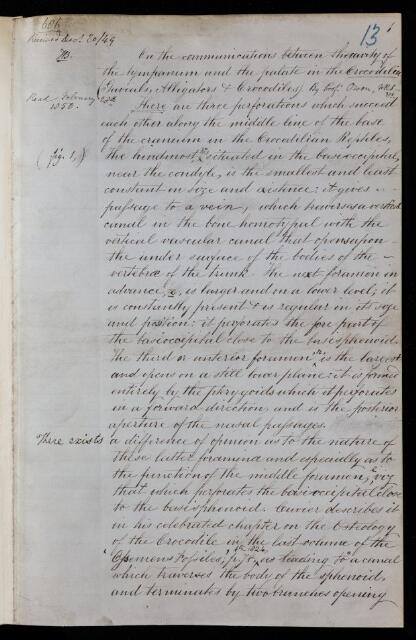 686
13
Received Dec. 20/49
On the communications between the cavity of
the tympanum and the palate in the Crocodilia
(Gavials, Alligators & Crocodiles) By Prof. Owen, F.R.S.
Read February
1850.
There are three perforations which succeed
each other along the middle line of the base
of the cranium in the Crocodilian Reptiles,
(fig. 1,)
the hindmost, situated in the basioccipital,
near the condyle, is the smallest and least
constant in size and existence: it gives
passage to a vein, which traverses a vertical
canal in the bone homotypal with the
vertical vascular canal that opens upon
the under surface of the bodies of the
vertebræ of the trunk. The next foramen in
advance, is larger and on a lower level; it
is constantly present & is regular in its size
and position: it perforates the fore part of
the basioccipital close to the basisphenoid.
The third or anterior foramen is the largest
and opens on a still lower plane: it is formed
entirely by the pterygoids which it perforates
in a forward direction and is the posterior
aperture of the nasal passages.
There exists a difference of opinion as to the nature of
these latter foramina and especially as to
the function of the middle foramen, viz
that which perforates the basioccipital close
to the basisphenoid. Cuvier describes it
in his celebrated chapter on the Osteology
of the Crocodile in the last volume of the
"Ossemens Fossiles, 4to 1824, as leading to "a canal
which traverses the body of the sphenoid,
and terminates by two branches opening